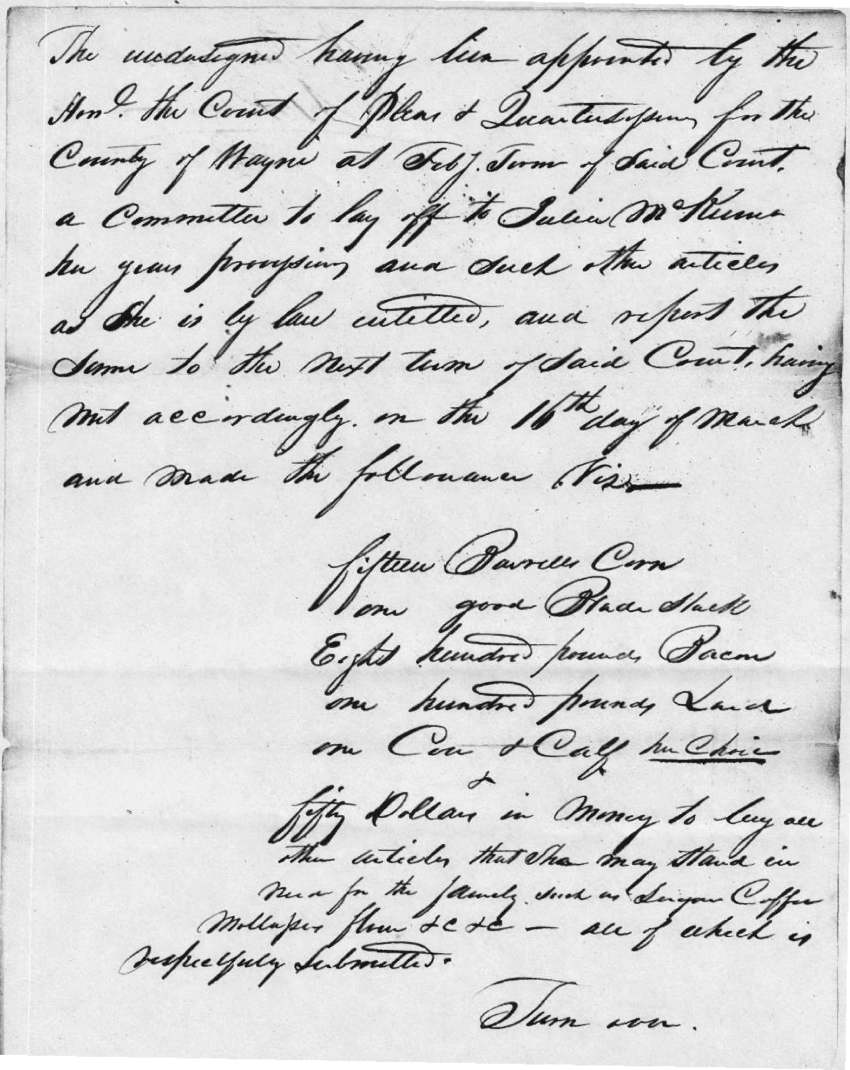 The undersigned having been appointed by the
Honl. the Court of Pleas & Quartersessions for the
County of Wayne at Feby. Term of Said Court,
a Committee to lay off to Julia McKinne
her years provissions and such other articles
as She is by law entitled, and report the
same to the next term of Said Court, having
met accordingly. on the 16th day of March
and made the following Viz.
fifteen Barrells Corn
one good Blade Stack
Eight hundred pounds Bacon
one hundred pounds Lard
one Cow & Calf her Choice
&
fifty Dollars in Money to buy all
other articles that she may stand in
need for the family such as Sugar Coffee
Mollasses flour &c &c — all of which is
respectfully Submitted.
Turn over.